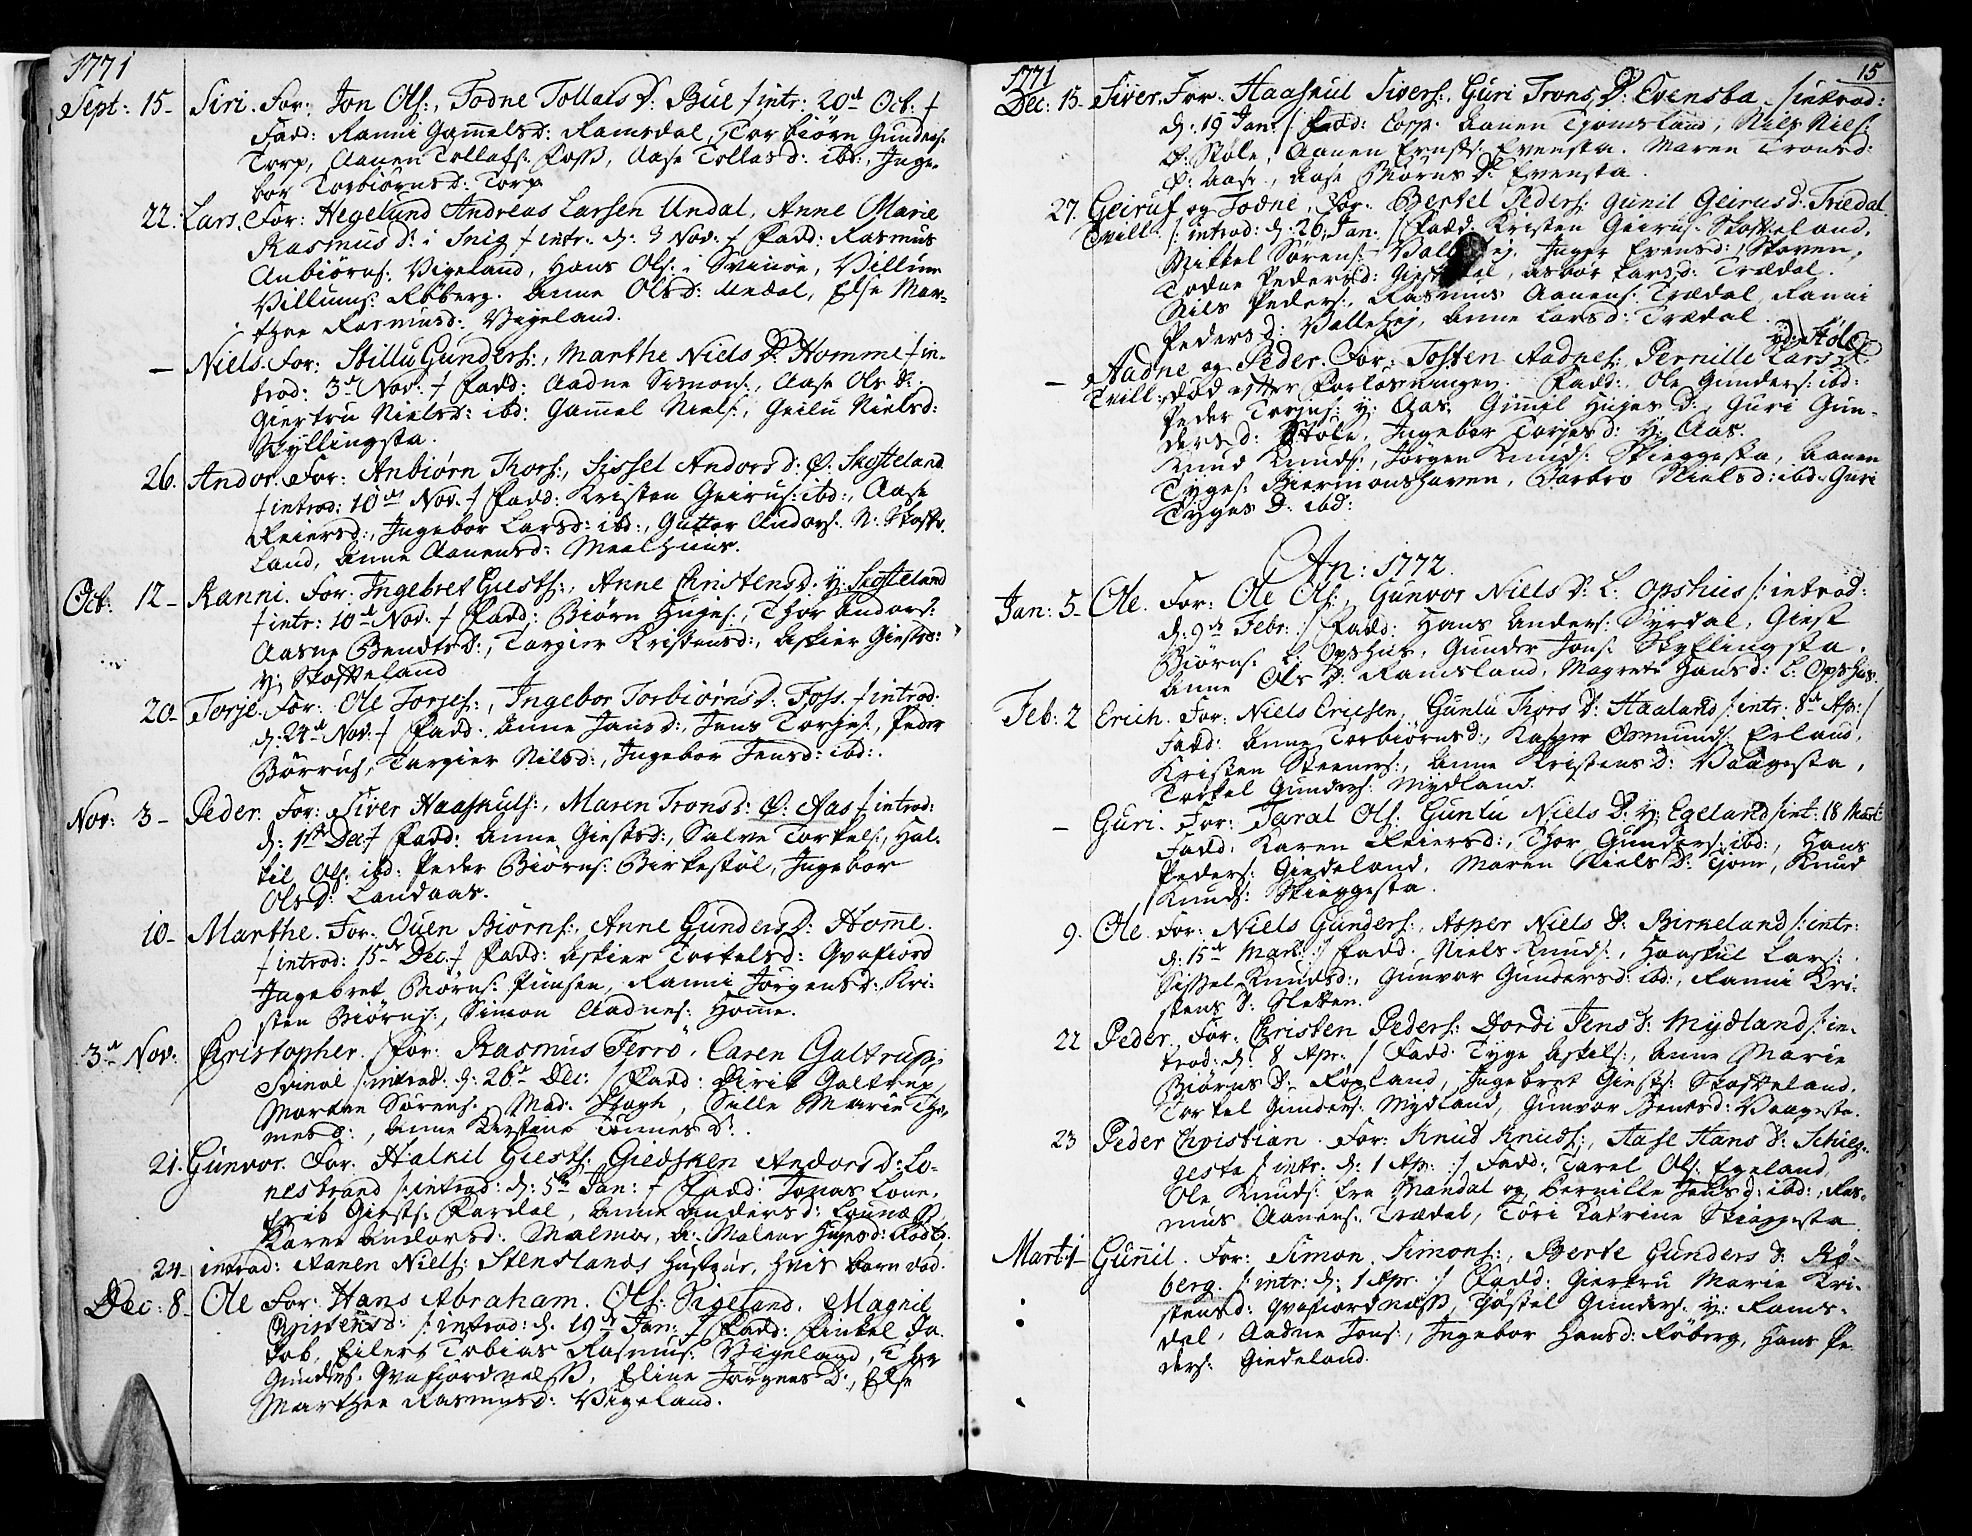 1771
Sept: 15. Siri. For: Jon Ols:, Todne Tollafs D: Bue /intr: 20d Oct: /
Fadd: Ranni Gammelsd: Ramsdal, Torbiørn Gunders:
Torp, Aanen Tollafs: Foss, Aase Tollafsd: ibd:, Inge-
bor Torbiørnsd: Torp
22. Lars. For: Hegelund Andreas Larsen Undal, Anne Marie
Rasmus D: i Snig / intr: d: 3 Nov: / Fadd: Rasmus
Anbiørns: Vigeland, Hans Ols: i Svinøe, Villum
Villums: Røberg. Anne Olsd: Undal, Else Mar-
thea Rasmusd: Vigeland.
— Niels. For: Stillu Gunders:, Marthe Niels D: Homme / in-
trod: 3d Nov: / Fadd: Aadne Simons:, Aase Ols D:
Giertru Nielsd: ibd: Gammel Niels:, Geilu Nielsd:
Skyllingsta.
26. Andor. For: Anbiørn Thors:, Sissel Andorsd: Ø: Skofteland
/ introd: 10d Nov: / Fadd: Kristen Geirufs: ibd:, Aase
Reiersd:, Ingebor Larsd: ibd:, Guttor Andors: N: Skofte-
land, Anne Aanensd: Mealhuus.
Oct: 12 - Ranni. For: Ingebret Giests:, Anne Christensd: y: Skofteland
/ intr: 10d Nov: / Fadd: Biørn Huges:, Thor Andors:
Aasne Bendts D:, Targier Kristensd:, Askier Giestsd:
y: Skofteland
20 - Torje. For: Ole Torjes:, Ingebor Torbiørns D: Foss. / introd:
d: 24d Nov: / Fadd: Anne Jansd:, Jens Torges:, Peder
Børrus:, Targier Nilsd:, Ingebor Jensd: ibd:.
Nov: 3 - Peder. For: Siver Haaskuls:, Maren Tronsd: Ø: Aas / introd:
d: 1ste Dec / Fadd: Anne Giestsd:, Salve Torkels:, Hal-
kil Ols: ibd: Peder Biørns: Birkestøl, Ingebor
Olsd: Landaas.
10 - Marthe. For: Ouen Biørns:, Anne Gunders D: Home.
/ introd: 15de Dec. / Fadd: Askier Torkelsd: Qvafiord
Ingebret Biørns: Punsen, Ranni Jørgensd: Kri-
sten Biørns:, Simon Aadnes: Home.
3d Nov: Christopher. For: Rasmus Ferrø, Caren Galtrup
Svinøe /: introd: d: 26d Dec: / Fadd: Kirik Galtrup,
Morten Sørens:, Mad: Hogh, Sille Marie Tho-
mesd:, Anne Kirstine Tønnes D:.
21. Gunvor. For: Halkil Giests: Giedsken Andors D: Lo-
nestrand /: introd: d: 5te Jan: / Fadd: Jonas Lone,
Erik Giests: Fardal, Anne Andersd: Lounæss,
Karen Andorsd: Malmø, A: Malene Hugesd: Rødb:
24. introd: Aanen Niels: Stenslands Hustrue, Hvis barn død.
Dec: 8. Ole For: Hans Abraham Ols: Sigeland. Magnil
Christensd: /: introd: d: 19d Jan: / Fadd: Kinkel Ja-
kob, Eilert Tobias Rasmus: Vigeland, Thor
Gunders: Qvafiordnæss, Eline Jørgens D:, Else
Marthea Rasmusd: Vigeland.
15
1771
Dec: 15 - Siver. For: Haaskul Sivers:, Guri Trons D: Evensta - / introd:
d: 19 Jan: / Fadd: Corp: Aanen Tiomsland, Niels Niels:
Ø: Støle, Aanen Ernsts: Evensta. Maren Tronsd:
Ø: Aas, Aase Biørns D: Evensta.
27. Geiruf og Todne, For: Bertel Peders: Gunil Geirufsd: Trædal
Tvill: /: introd: d: 26 Jan: / Fadd: Kristen Geirufs: Skofteland,
Mikkel Sørens: Inger Evensd: Skoven,
Todne Pedersd: Asbor Larsd: Trædal.
Nils Peders:, Rasmus Aanens: Trædal, Ranni
Pedersd: Vallehej, Anne Larsd: Trædal.
yd: Støle
— Aadne og Peder. For: Tosten Aadnes:, Pernille Lars D:
Tvill: død efter Forløsningen. Fadd: Ole Gunders: ibd:
Peder Torjus: y: Aas. Gunil Huges D:, Guri Gun-
dersd: Støle, Ingebor Torjesd: y: Aas.
Knud Knuds:, Jørgen Knuds: Skieggesta, Aanen
Tyges: Biermonshaven, Barbro Nielsd: ibd: Guri
Tyges D: ibd:
An: 1772.
Jan: 5 - Ole. For: Ole Ols:, Gunvor Niels D: L: Opshus /: introd:
d: 9d Febr: / Fadd: Hans Anders: Syrdal, Giest
Biørns: L: Opshus, Gunder Jons: Skyllingsta.
Anne Ols D: Ramsland, Magrete Hansd: L: Opshus.
Feb: 2 Erich. For: Niels Ericsen, Guntu Thors D: Haaland /: intr: 8d Apr: /
Fadd: Anne Torbiørnsd:, Kasper Osmunds: Erland,
Kristen Steeners:, Anne Kristens D: Vaagesta,
Torkel Gunders: Mydland.
- Guri. For: Taral Ols: Guntu Niels D: y: Egeland /int: 18 Mart:
Fadd: Karen Reiersd:, Thor Gunders: ibd:, Hans
Peders: Giedeland, Maren Niels D: Tiom, Knud
Knuds: Skieggesta.
9. Ole For: Niels Gunders:, Asper Niels D: Birkeland /: intr:
d: 15de Mart: / Fadd: Niels Knuds:, Haaskul Lars:
Sissel Knudsd:, Gunvor Gundersd: ibd:, Ranni Kri-
stens D: Sletten.
22 Peder. For: Christen Peders: Dordi Jens D: Mydland /: in-
trod: d: 8 Apr: / Fadd: Tyge Askels:, Anne Marie
Biørns D: Røyland, Ingebret Giests: Skofteland.
Torkel Gunders: Mydland, Gunvor Bentsd: Vaagesta.
23 Peder Christian. For: Knud Knuds:, Aase Hans D: Schieg-
gesta /: intr: d: 1 Apr: / Fadd: Tarel Ols: Egeland,
Ole Knuds: fra Mandal og Pernille Jensd: ibd:, Ras-
mus Aanens: Trædal, Tori Katrine Skieggesta.
Mart: 1 - Gunil. For: Simon Simons:, Berte Gunders D: Rø-
berg. /: intr: d: 1 Apr: / Fadd: Giertru Marie Kri-
stensd: Qvafiordnæss, Tostel Gunders: y: Rams-
dal, Aadne Jons:, Ingebor Hansd: Røberg, Hans Pe-
ders: Giedeland.